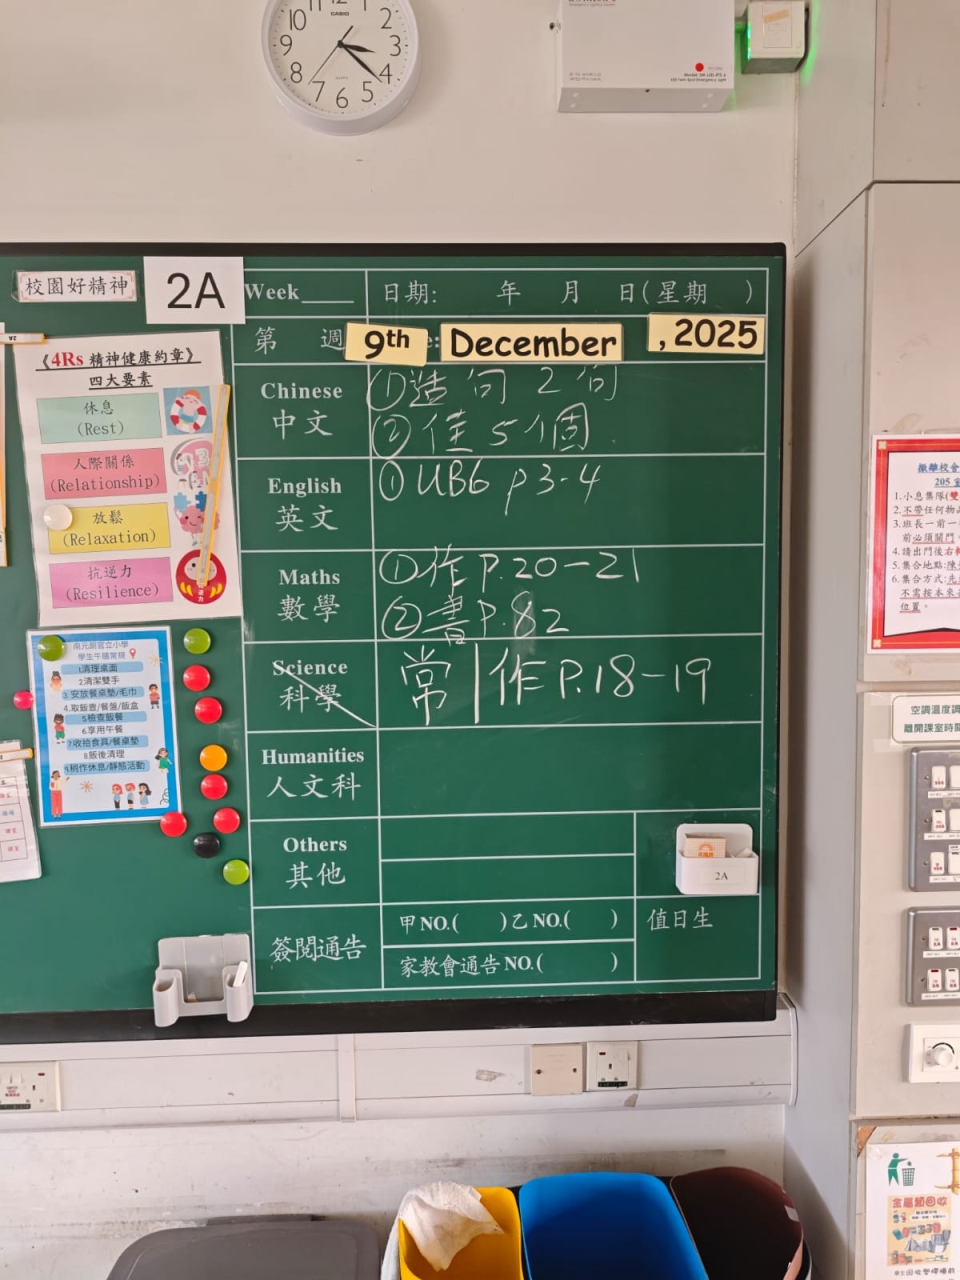 12
10
2
9
3
8
4
7
6
5
CASIO
QUARTZ
校園好精神
2A
Week____
日期: 年 月 日(星期 )
第 週
9th December , 2025
《4Rs 精神健康約章》
四大要素
休息
(Rest)
人際關係
(Relationship)
放鬆
(Relaxation)
抗逆力
(Resilience)
Chinese
中文
①造句 2句
②佳 5個
English
英文
①UB6 p3-4
Maths
數學
①作 P.20-21
②書 P.82
Science
科學
常|作 P.18-19
Humanities
人文科
Others
其他
2A
簽閱通告
甲NO.( )乙NO.( )
家教會通告NO.( )
值日生
南元朗官立小學
學生午膳常規
1.清理桌面
2清潔雙手
3.安放餐桌墊/毛巾
4.取飯壼/餐盤/飯盒
5檢查飯餐
6.享用午餐
7.收拾食具/餐桌墊
8.飯後清理
9.稍作休息/靜態活動
205
1.小息集隊(
2.不帶任何物
3.班長一前一
前必須關門
4.請出門後右
5.集合地點:
6.集合方式:
不需按本來
位置。
空調溫度
離開課室時
金屬類回收